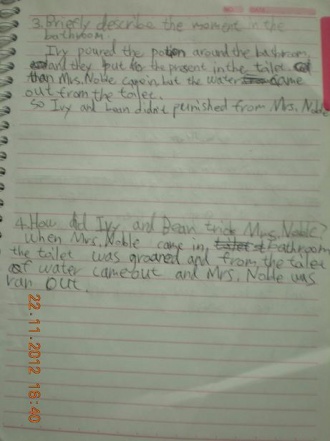 3. Briefly describe the moment in the
bathroom.
Ivy poured the potion around the bathroom
and they put for the present in the toilet.
than Mrs. Noble came in, but the water came
out from the toilet.
So Ivy and bean didn't punished from Mrs. Noble
4. How did Ivy and Bean trick Mrs. Noble?
When Mrs. Noble came in, bathroom
the toilet was groaned and from the toilet
of water came out and Mrs. Noble was
ran out.
22.11.2012 18:40